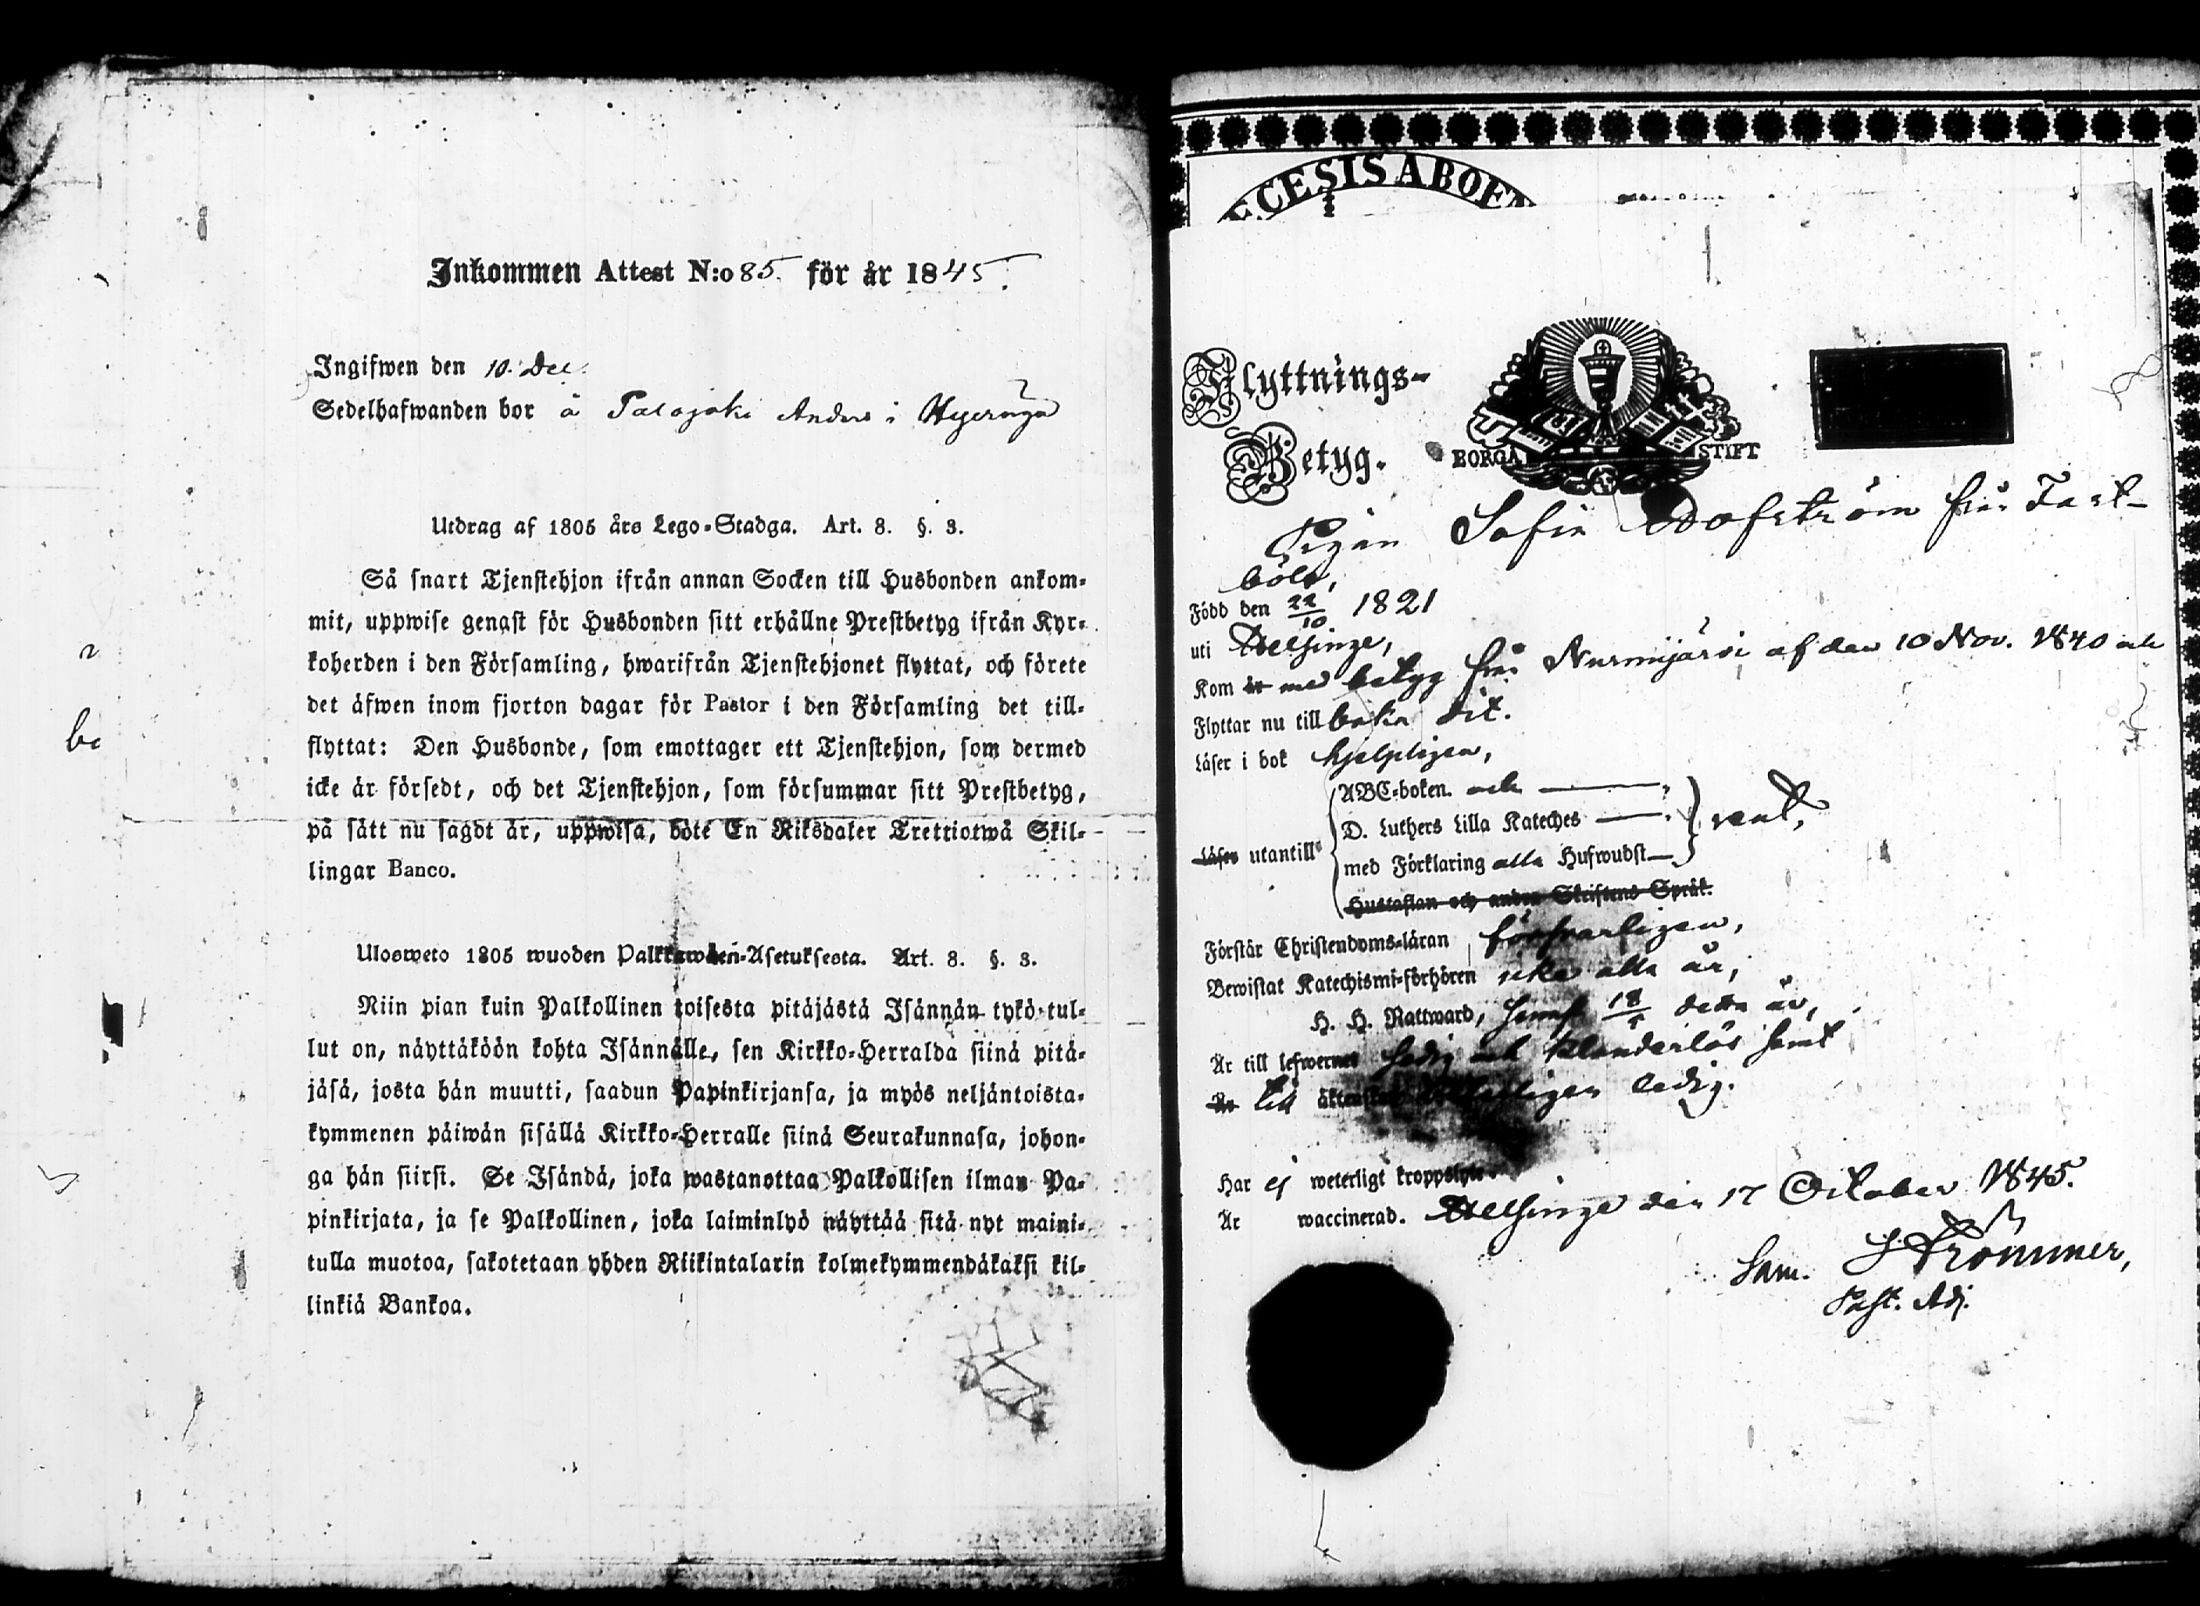 Inkommen Attest N:o 85. för år 1845.
Ingifwen den 10. Dec.
Sedelhafwanden bor å Palojoki Anders i
Utdrag af 1805 års Lego-Stadga. Art. 8. §. 3.
Så snart Tjenstehjon ifrån annan Socken till Husbonden ankom-
mit, uppwise genast för Husbonden sitt erhållne Prestbetyg ifrån Kyr-
koherden i den Församling, hwarifrån Tjenstehjonet flyttat, och förete
det äfwen inom fjorton dagar för Pastor i den Församling det till-
flyttat: Den Husbonde, som emottager ett Tjenstehjon, som dermed
icke är försedt, och det Tjenstehjon, som försummar sitt Prestbetyg,
på sätt nu sagdt är, uppwisa, böte En Riksdaler Trettiotwå Skil-
lingar Banco.
Ulosweto 1805 wuoden Palkkawäen-Asetuksesta. Art. 8. §. 3.
Niin pian kuin Palkollinen toisesta pitäjästä Isännän tykö tul-
lut on, näyttäköön kohta Isännälle, sen Kirkko-Herralda siinä pitä-
jäsä, josta hän muutti, saadun Papinkirjansa, ja myös neljäntoista-
kymmenen päiwän sisällä Kirkko-Herralle siinä Seurakunnasa, johon-
ga hän siirsi. Se Isändä, joka wastanottaa Palkollisen ilman Pa-
pinkirjata, ja se Palkollinen, joka laiminlyö näyttää sitä nyt maini-
tulla muotoa, sakotetaan yhden Riikintalarin kolmekymmendäkaksi kil-
linkiä Bankoa.
CESIS ABOEN
Flyttnings-
Betyg.
BORGÅ STIFT
Pigan Sofia Dofström från Fast-
böle,
Född den 22/10 1821
uti Helsinge,
Kom är med betyg från Nurmijärvi af den 10 Nov. 1840 och
Flyttar nu till baka dit.
Läser i bok hjelpligen,
ABC-boken. och
D. Luthers Lilla Kateches
Läser utantill
med Förklaring alla Hufwudst
rent,
Hustaflan och andra Skriftens Språk.
Förstår Christendoms-läran försvarligen,
Bewistat Katechismi-förhören icke alla år,
H. H. Nattward, senast 18/5 detta år,
Är till lefwernet sedig och klanderlös samt
Är till äktenskap ledig.
Har ej weterligt kroppslyte.
Är waccinerad. Helsinge den 17 October 1845.
Sam. Strömmer,
Past. Adj.